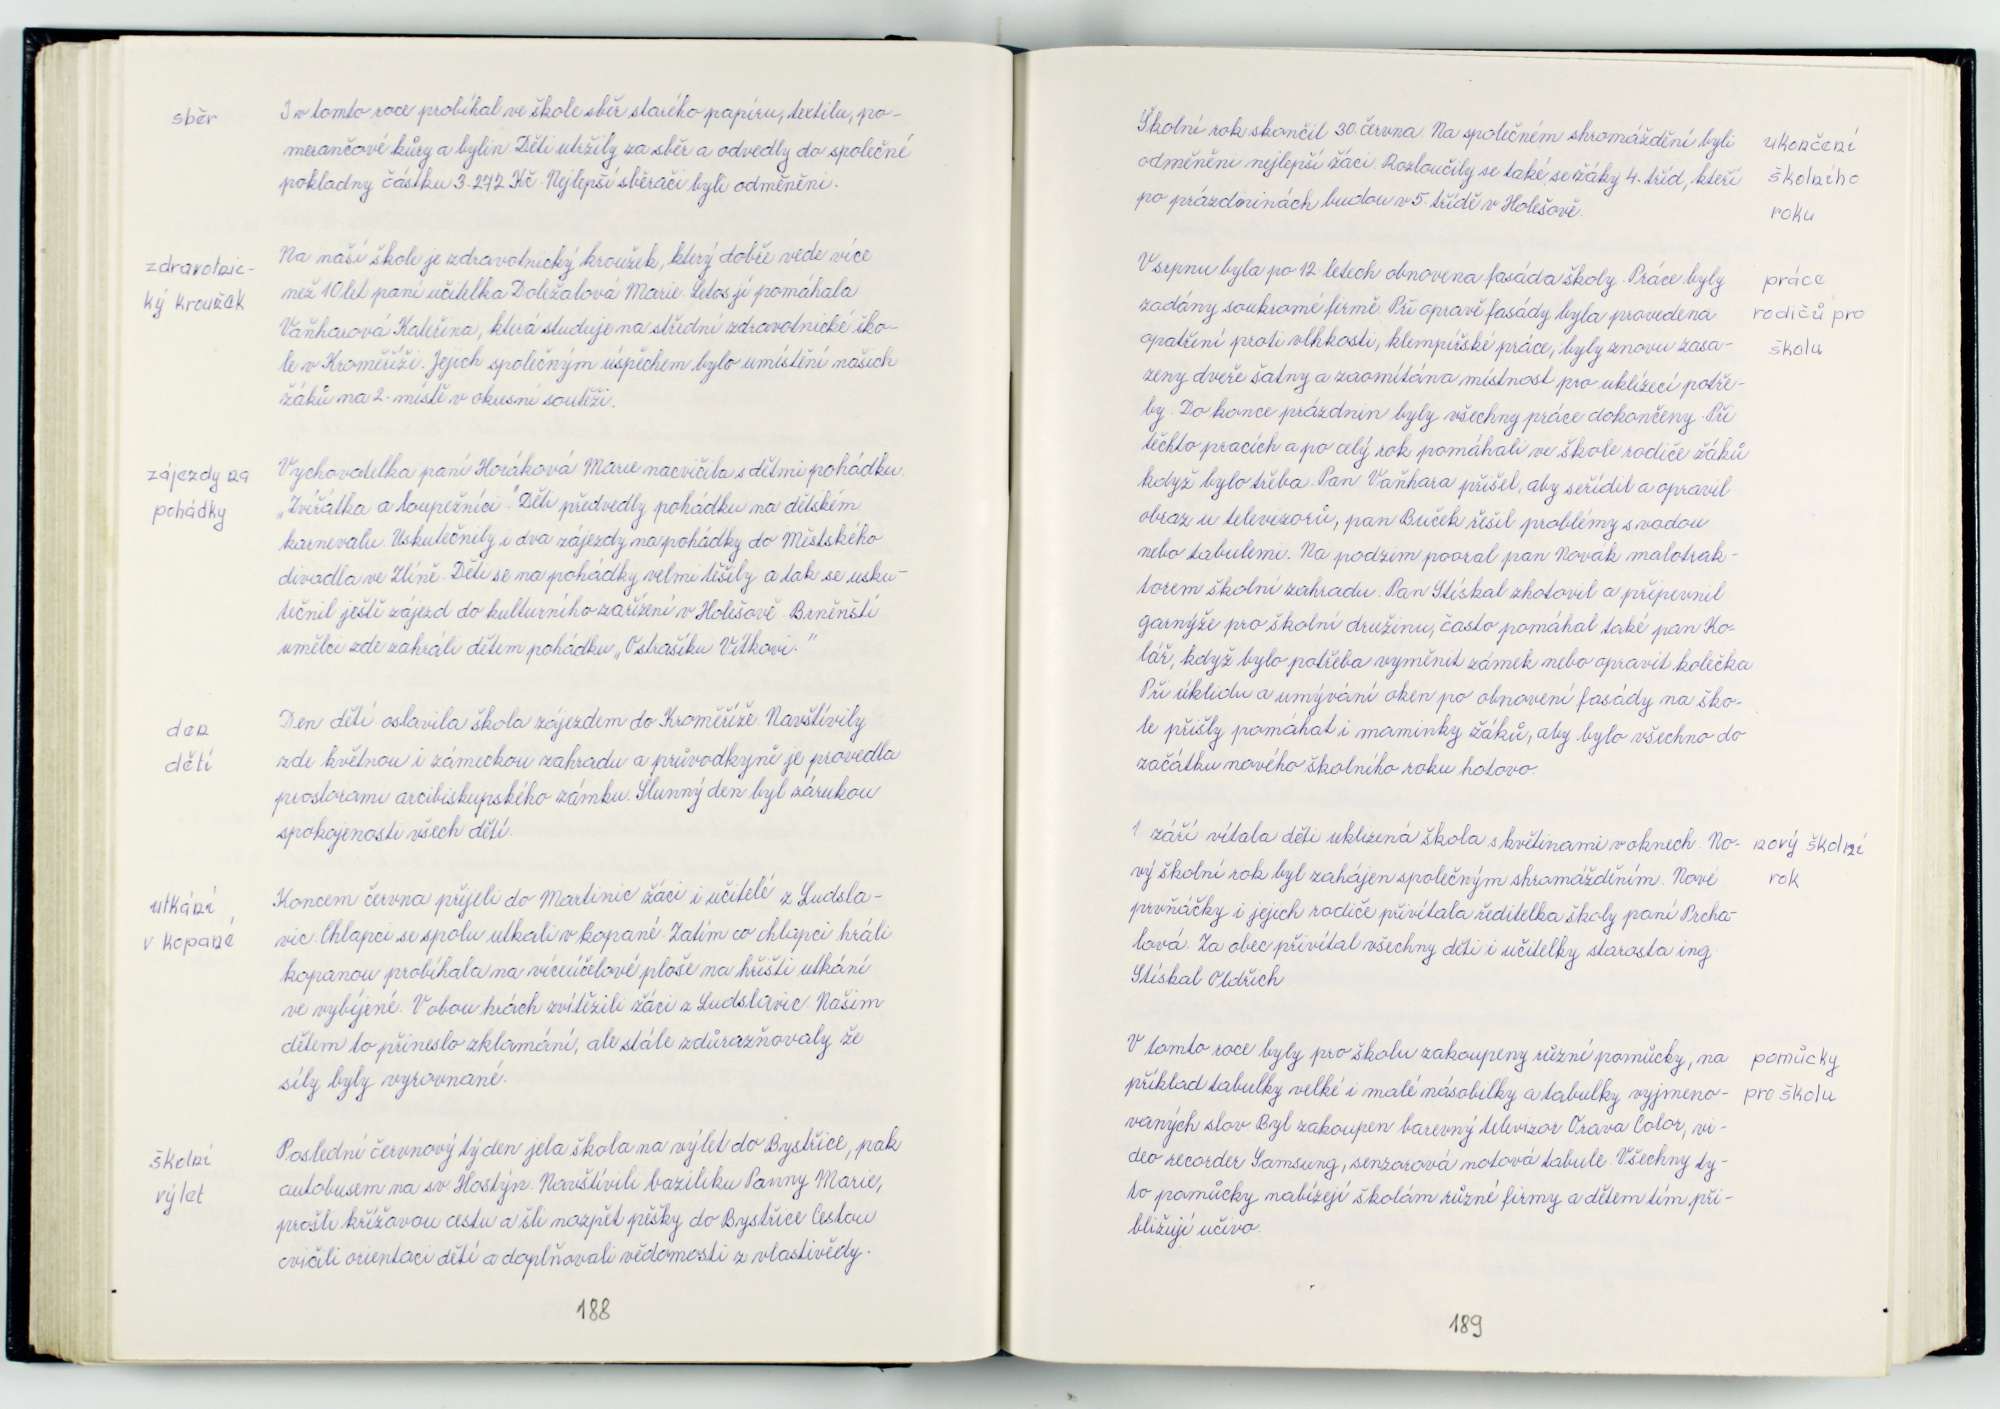 sběr
I v tomto roce probíhal ve škole sběr starého papíru, textilu, po-
merančové kůry a bylin. Děti utržily za sběr a odvedly do společné
pokladny částku 3.272 Kč. Nejlepší sběrači byli odměněni.
zdravotnic-
ký kroužek
Na naší škole je zdravotnický kroužek, který dobře vede více
než 10 let paní učitelka Doležalová Marie. Letos jí pomáhala
Vaňharová Kateřina, která studuje na střední zdravotnické ško-
le v Kroměříži. Jejich společným úspěchem bylo umístění našich
žáků na 2. místě v okresní soutěži.
zájezdy na
pohádky
Vychovatelka paní Horáková Marie nacvičila s dětmi pohádku
„Zvířátka a loupežníci". Děti předvedly pohádku na dětském
karnevalu. Uskutečnily i dva zájezdy na pohádky do Městského
divadla ve Zlíně. Děti se na pohádky velmi těšily a tak se usku-
tečnil ještě zájezd do kulturního zařízení v Holešově. Brněnští
umělci zde zahráli dětem pohádku „O strašíku Vítkovi."
den
dětí
Den dětí oslavila škola zájezdem do Kroměříže. Navštívily
zde květnou i zámeckou zahradu a průvodkyně je provedla
prostorami arcibiskupského zámku. Slunný den byl zárukou
spokojenosti všech dětí.
utkání
v kopané
Koncem června přijeli do Martinic žáci i učitelé z Ludsla-
vic. Chlapci se spolu utkali v kopané. Zatím co chlapci hráli
kopanou probíhala na víceúčelové ploše na hřišti utkání
ve vybíjené. V obou hrách zvítězili žáci z Ludslavic. Našim
dětem to přineslo zklamání, ale stále zdůrazňovaly že
síly byly vyrovnané.
školní
výlet
Poslední červnový týden jela škola na výlet do Bystřice, pak
autobusem na sv. Hostýn. Navštívili baziliku Panny Marie,
prošli křížovou cestu a šli nazpět pěšky do Bystřice. Cestou
cvičili orientaci dětí a doplňovali vědomosti z vlastivědy.
188
Školní rok skončil 30. června. Na společném shromáždění byli
odměněni nejlepší žáci. Rozloučily se také se žáky 4. tříd, kteří
po prázdninách budou v 5. třídě v Holešově.
ukončení
školního
roku
V srpnu byla po 12 letech obnovena fasáda školy. Práce byly
zadány soukromé firmě. Při opravě fasády byla provedena
opatření proti vlhkosti, klempířské práce, byly znovu zasa-
zeny dveře šatny a zaomítána místnost pro uklízecí potře-
by. Do konce prázdnin byly všechny práce dokončeny. Při
těchto pracích a po celý rok pomáhali ve škole rodiče žáků
když bylo třeba. Pan Vaňhara přišel, aby seřídil a opravil
obraz u televizorů, pan Buček řešil problémy s vodou
nebo tabulemi. Na podzim pooral pan Novák malotrak-
torem školní zahradu. Pan Stískal zhotovil a připevnil
garnýže pro školní družinu, často pomáhal také pan Ko-
lář, když bylo potřeba vyměnit zámek nebo opravit kolečka
Při úklidu a umývání oken po obnovení fasády na ško-
le přišly pomáhat i maminky žáků, aby bylo všechno do
začátku nového školního roku hotovo.
práce
rodičů pro
školu
1. září vítala děti uklizená škola s květinami v oknech. No-
vý školní rok byl zahájen společným shromážděním. Nové
prvňáčky i jejich rodiče přivítala ředitelka školy paní Prcha-
lová. Za obec přivítal všechny děti i učitelky starosta ing.
Stískal Oldřich
nový školní
rok
V tomto roce byly pro školu zakoupeny různé pomůcky, na
příklad tabulky velké i malé násobilky a tabulky vyjmeno-
vaných slov. Byl zakoupen barevný televizor Orava Color, vi-
deo recorder Samsung, senzorová notová tabule. Všechny ty-
to pomůcky nabízejí školám různé firmy a dětem tím při-
bližují učivo.
pomůcky
pro školu
189